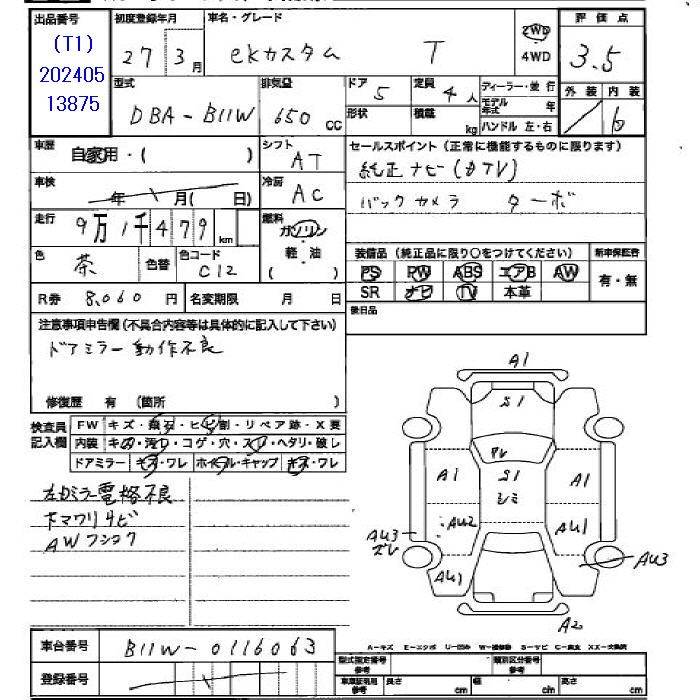 出品番号
(T1)
202405
13875
初度登録年月
27年3月
車名・グレード
eKカスタム T
2WD
4WD
評価点
3.5
型式
DBA-B11W
排気量
650 cc
ドア 5
定員 4人
形状
積載 kg
ディーラー・並行
モデル年式 年
ハンドル 左・右
外装 内装
/ b
車歴
自家用・( )
シフト
AT
セールスポイント(正常に機能するものに限ります)
純正ナビ(カTV)
バックカメラ ターボ
車検
年 月( 日)
冷房
AC
走行
9万1千479km
燃料
ガソリン
・
軽・油
( )
色
茶
色替
色コード
C12
装備品(純正品に限り○をつけてください)
新車保証書
PS PW ABS エアB AW
SR ナビ TV 本革
有・無
R券 8,060円
名変期限 月 日
後日品
注意事項申告欄(不具合内容等は具体的に記入して下さい)
ドアミラー動作不良
修復歴 有 (箇所 )
検査員
記入欄
FW キズ・飛石・ヒビ割・リペア跡・X要
内装 キズ・汚レ・コゲ・穴・スレ・ヘタリ・破レ
ドアミラー キズ・ワレ ホイール・キャップ キズ・ワレ
左ドアミラー電格不良
下マワリサビ
AWフショク
A1
S1
アレ
A1
S1
シミ
A1
AU3
ズレ
AU2
AU1
AU3
AU1
A2
車台番号
B11W-0116063
登録番号
A-キズ E-エクボ U-凹み W-補修跡 S-サビ C-腐食 XX-交換済
型式指定番号
類別区分番号
車庫証明用参考
長さ cm
幅 cm
高さ cm